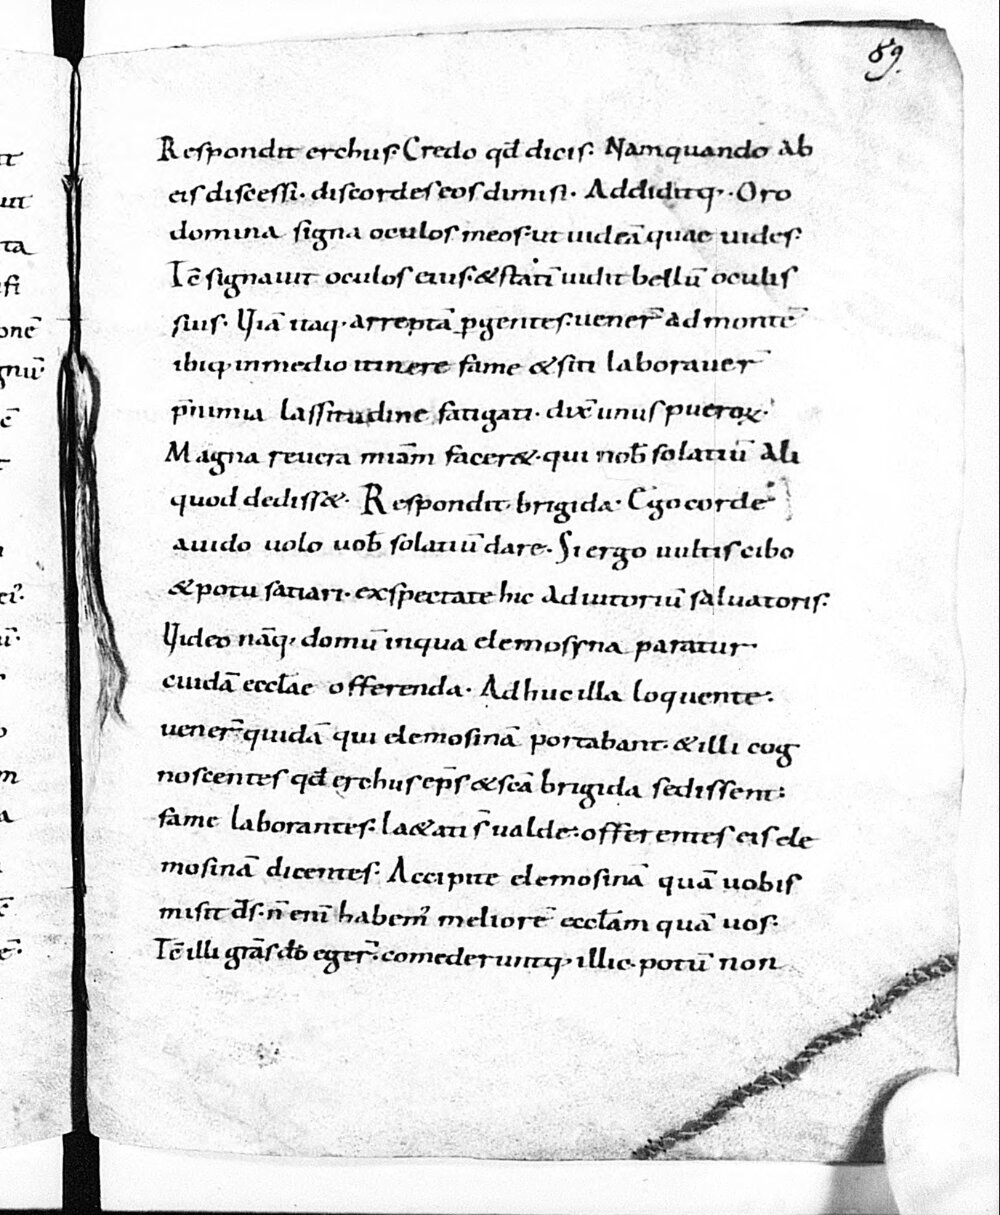 59.
Respondit erchus. Credo qđ dicis. Nam quando ab
eis discessi. discordes eos dimisi. Addiditq; Oro
domina signa oculos meos ut uideā quae uides.
Tc̄ signauit oculos eius. & statī uidit bellū oculis
suis. Viā itaq; arreptā p̱gentes. uener̄ ad montē
ibiq; in medio itinere fame & siti laborauer̄
p̄ nimia lassitudine fatigati. dix̄ unus pueroꝝ.
Magna reuera miām facer&. qui nob̄ solatiū ali
quod dediss&. Respondit brigida. Ego corde
auido uolo uob̄ solatiū dare. Si ergo uultis cibo
& potu satiari. exspectate hic adiutoriū saluatoris.
Video nāq; domū in qua elemosyna paratur
cuidā eccłae offerenda. Adhuc illa loquente.
uener̄ quidā qui elemosinā portabant. & illi cog
noscentes qđ erchus ep̄s & sc̄a brigida sedissent.
fame laborantes. l&ati s̄ ualde. offerentes eis ele
mosinā dicentes. Accipite elemosinā quā uobis
misit d̄s. n̄ enī habem᾽ meliorē eccłam quā uos.
Tc̄ illi grās dō eger̄. comederuntq; illic. potū non